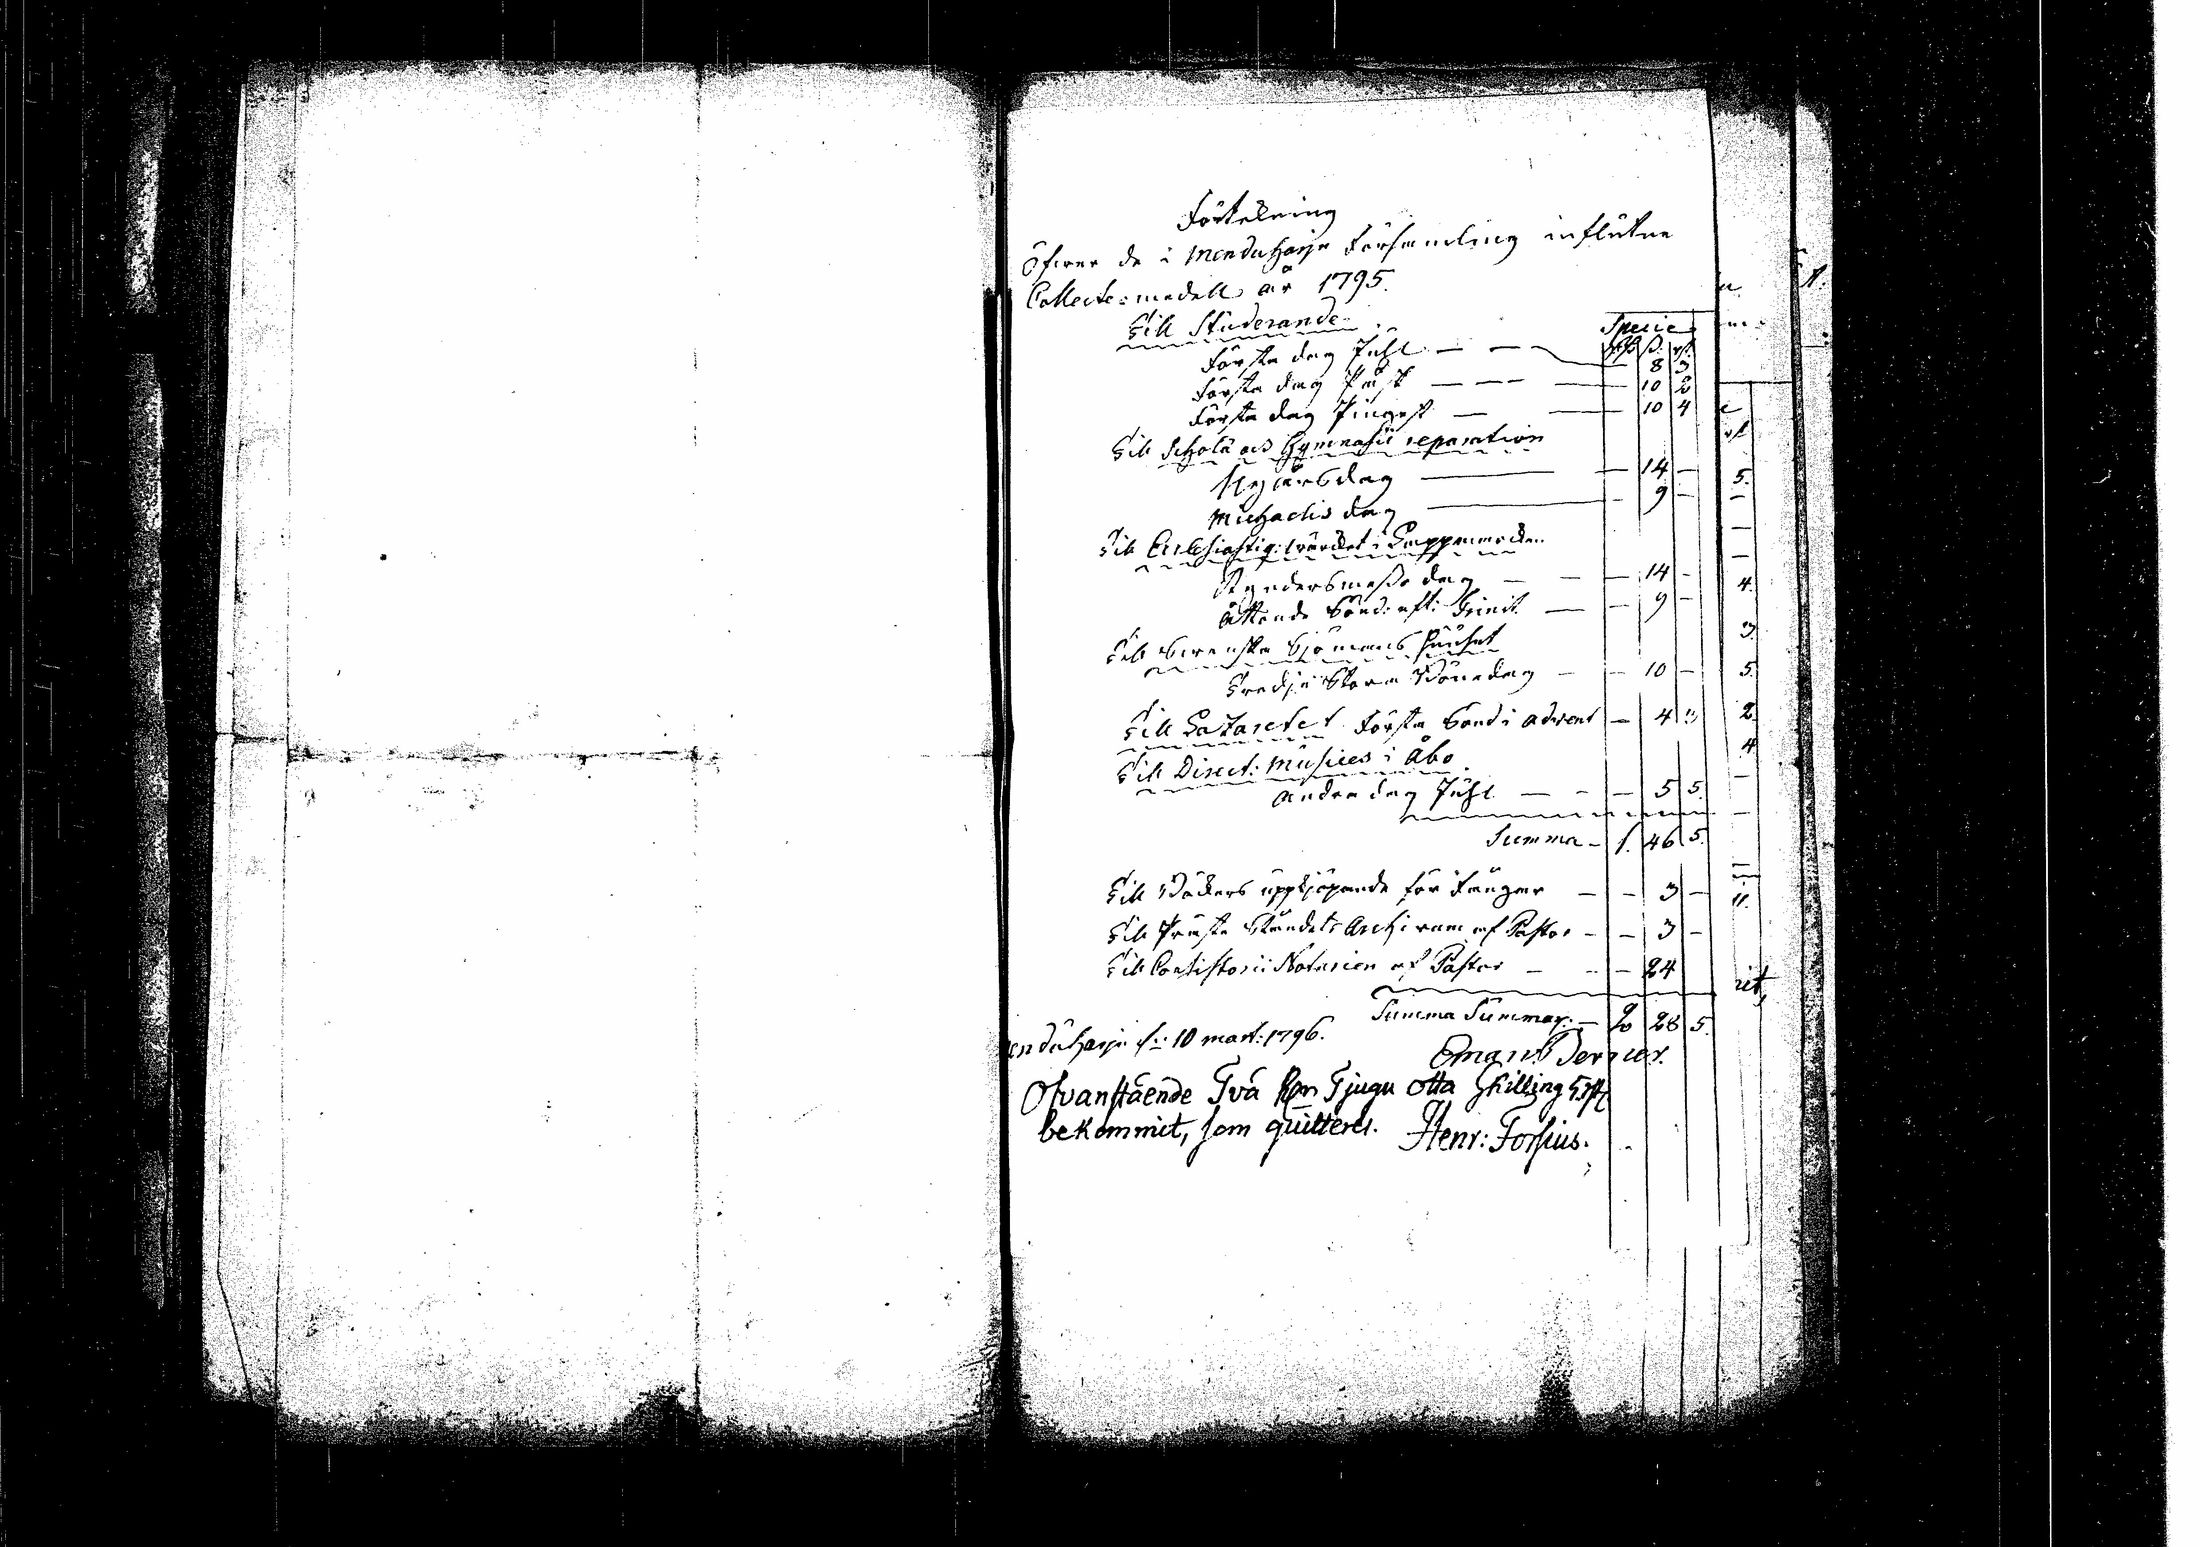 Förtekning
öfwer de i Mänduharju Församling influtne
Collecte-medell år 1795.
Till Studerande. Specie
Rdr ß. rst.
Första dag Juhl — — — 8 3
Första dag Påsk — — — 10 2
Första dag Pingest — — 10 4
Till Schola och Gymnasii reparation
Nyårsdag — — 14 —
Michaelis dag — — 9 —
Till Ecclesiastiq: wärcket i Lappmarcken
Kyndersmässo dag — — — 14 —
Åttonde Sönd. eft: Trinit. — — 9 —
Till Swenska Sjömans Huuset
Tredje Stora Bönedag — — 10 —
Till Lazaretet Första Sönd i Advent — 4 3
Till Direct: Musices i Åbo
Andra dag Juhl — — — 5 5.
Summa — 1. 46 5.
Till Böckers uppkjöpande för Fångar — — 3 —
Till Präste Ståndets Archivum af Pastor — — 3 —
Till Consistorii Notarien af Pastor — — — 24
Summa Summar: — 2 28 5.
änduharju d: 10 Mart: 1796.
Eman: Berner.
Ofvanstående Två Rdr Tjugu otta Skilling 5 rst
bekommit, som quitteras. Henr: Forsius.